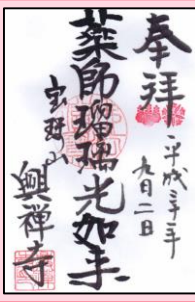 奉拝
平成三十年
九月二日
薬師瑠璃光如来
興禅寺